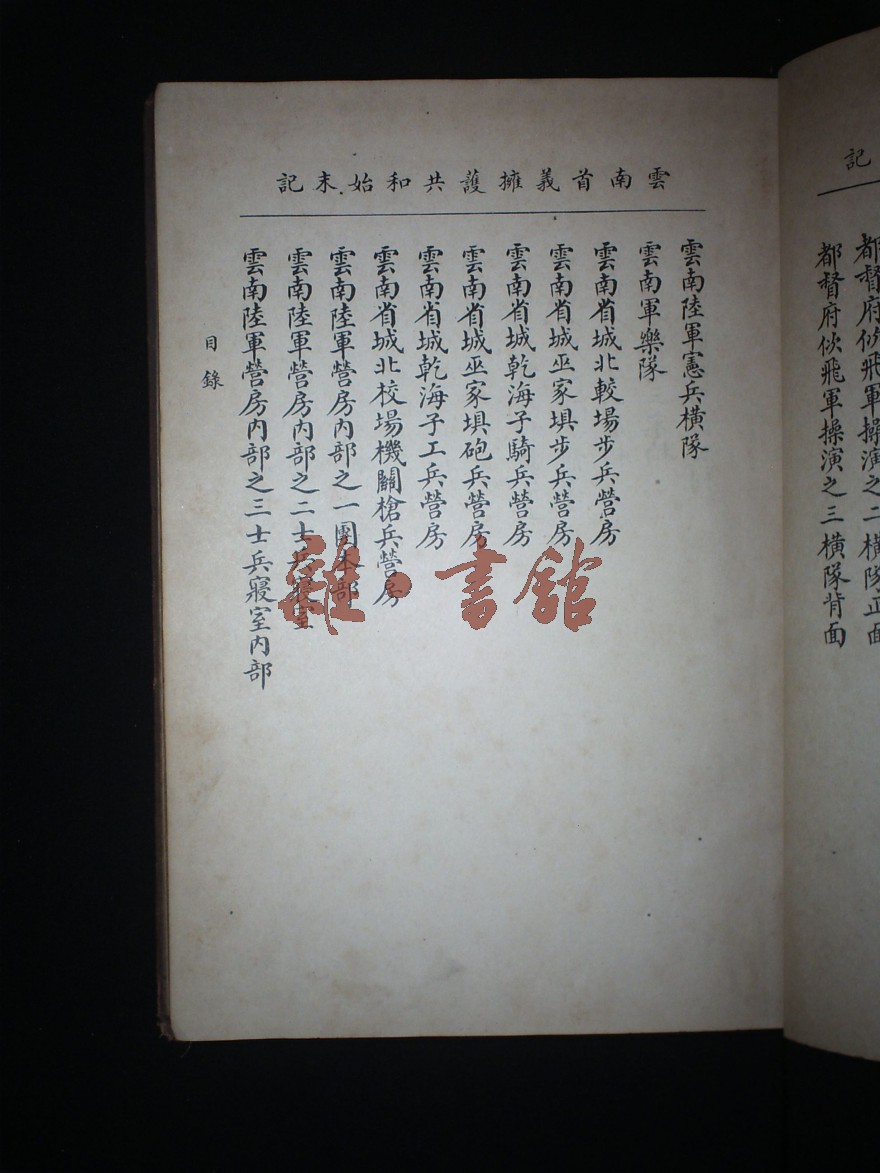 記
都督府佽飛軍操演之二橫隊正面
都督府佽飛軍操演之三橫隊背面
雲南首義擁護共和始末記
雲南陸軍憲兵橫隊
雲南軍樂隊
雲南省城北較場步兵營房
雲南省城巫家埧步兵營房
雲南省城乾海子騎兵營房
雲南省城巫家埧砲兵營房
雲南省城乾海子工兵營房
雲南省城北校場機關槍兵營房
雲南陸軍營房內部之一團本部
雲南陸軍營房內部之二士兵寢室
雲南陸軍營房內部之三士兵寢室內部
目錄
雜·書館